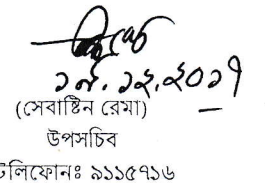 ১৮.১২.২০১৭
(সেবাষ্টিন রেমা)
উপসচিব
টেলিফোনঃ ৯১১৫৭১৬